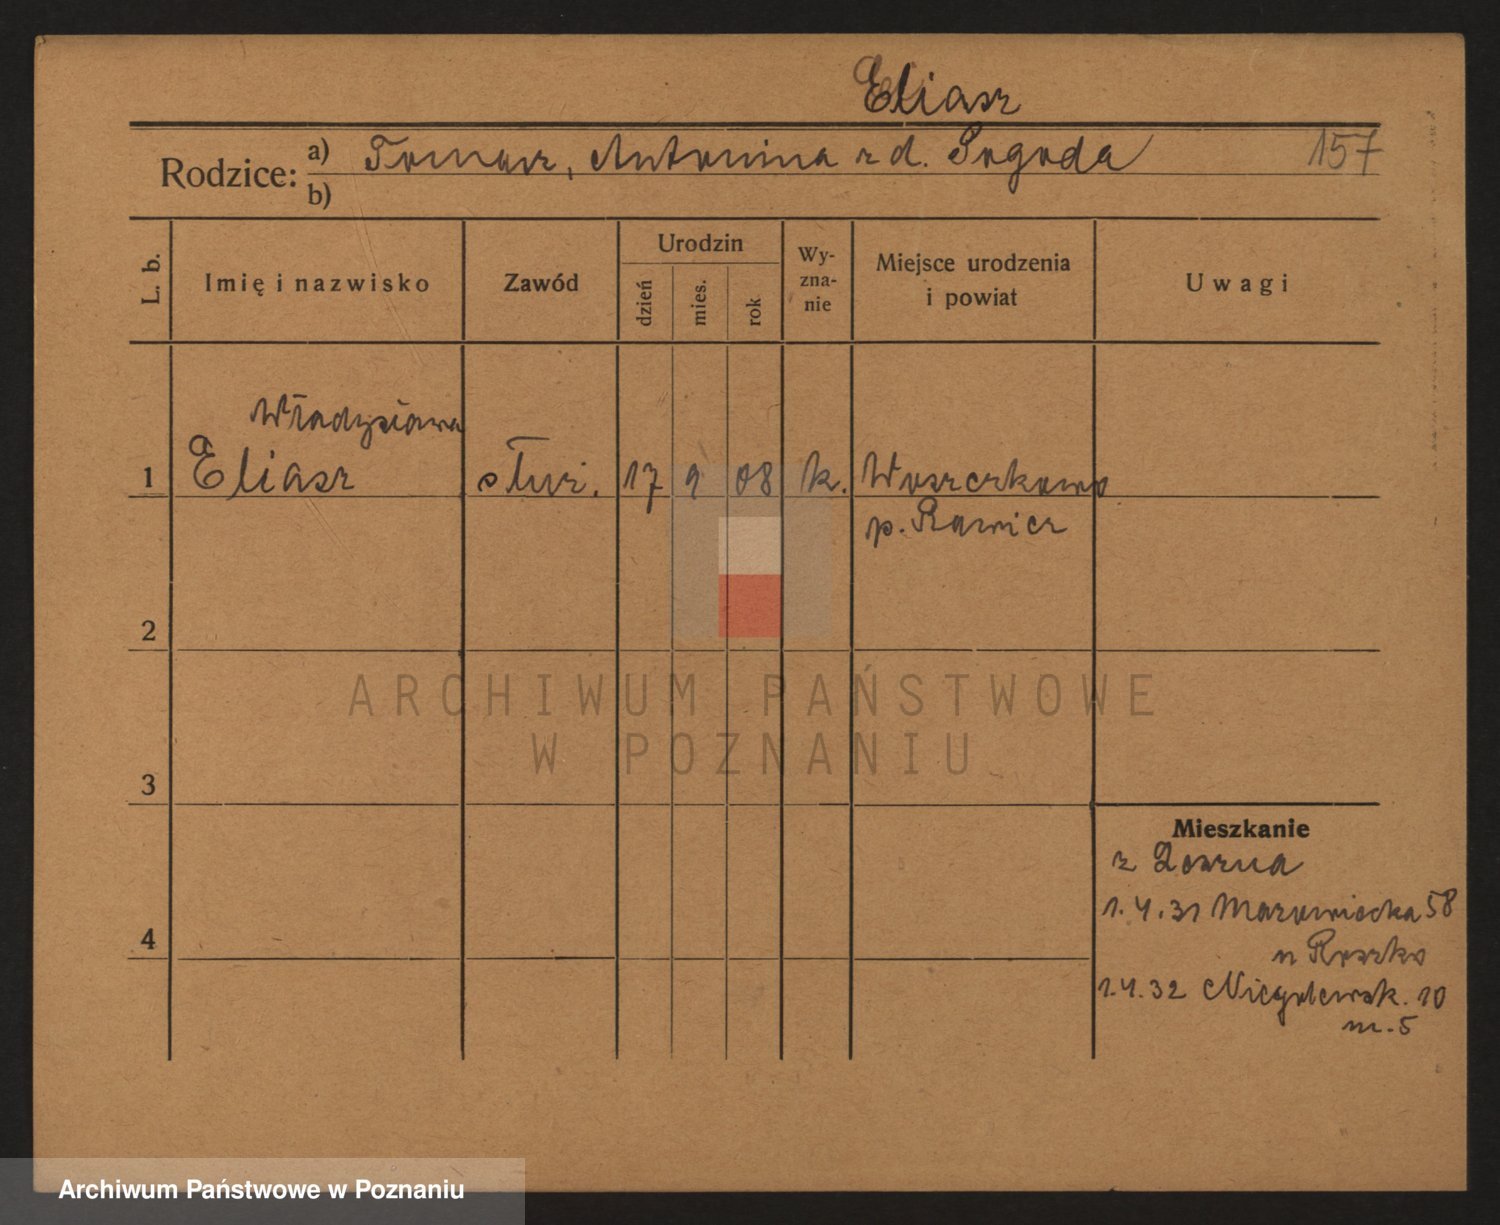 Eliasz
Rodzice: a) Tomasz, Antonina zd. Pogoda 157
b)
L. b.
Imię i nazwisko
Zawód
Urodzin
dzień
mies.
rok
Wy-
zna-
nie
Miejsce urodzenia
i powiat
Uwagi
Władysława
1 Eliasz służ. 17 9 08 k. Woszczkowo
p. Rawicz
2
ARCHIWUM PAŃSTWOWE
W POZNANIU
3
Mieszkanie
z Leszna
1.4.31 Mazowiecka 58
u Roszko
4
1.4.32 Niegolewsk. 10
m. 5
Archiwum Państwowe w Poznaniu